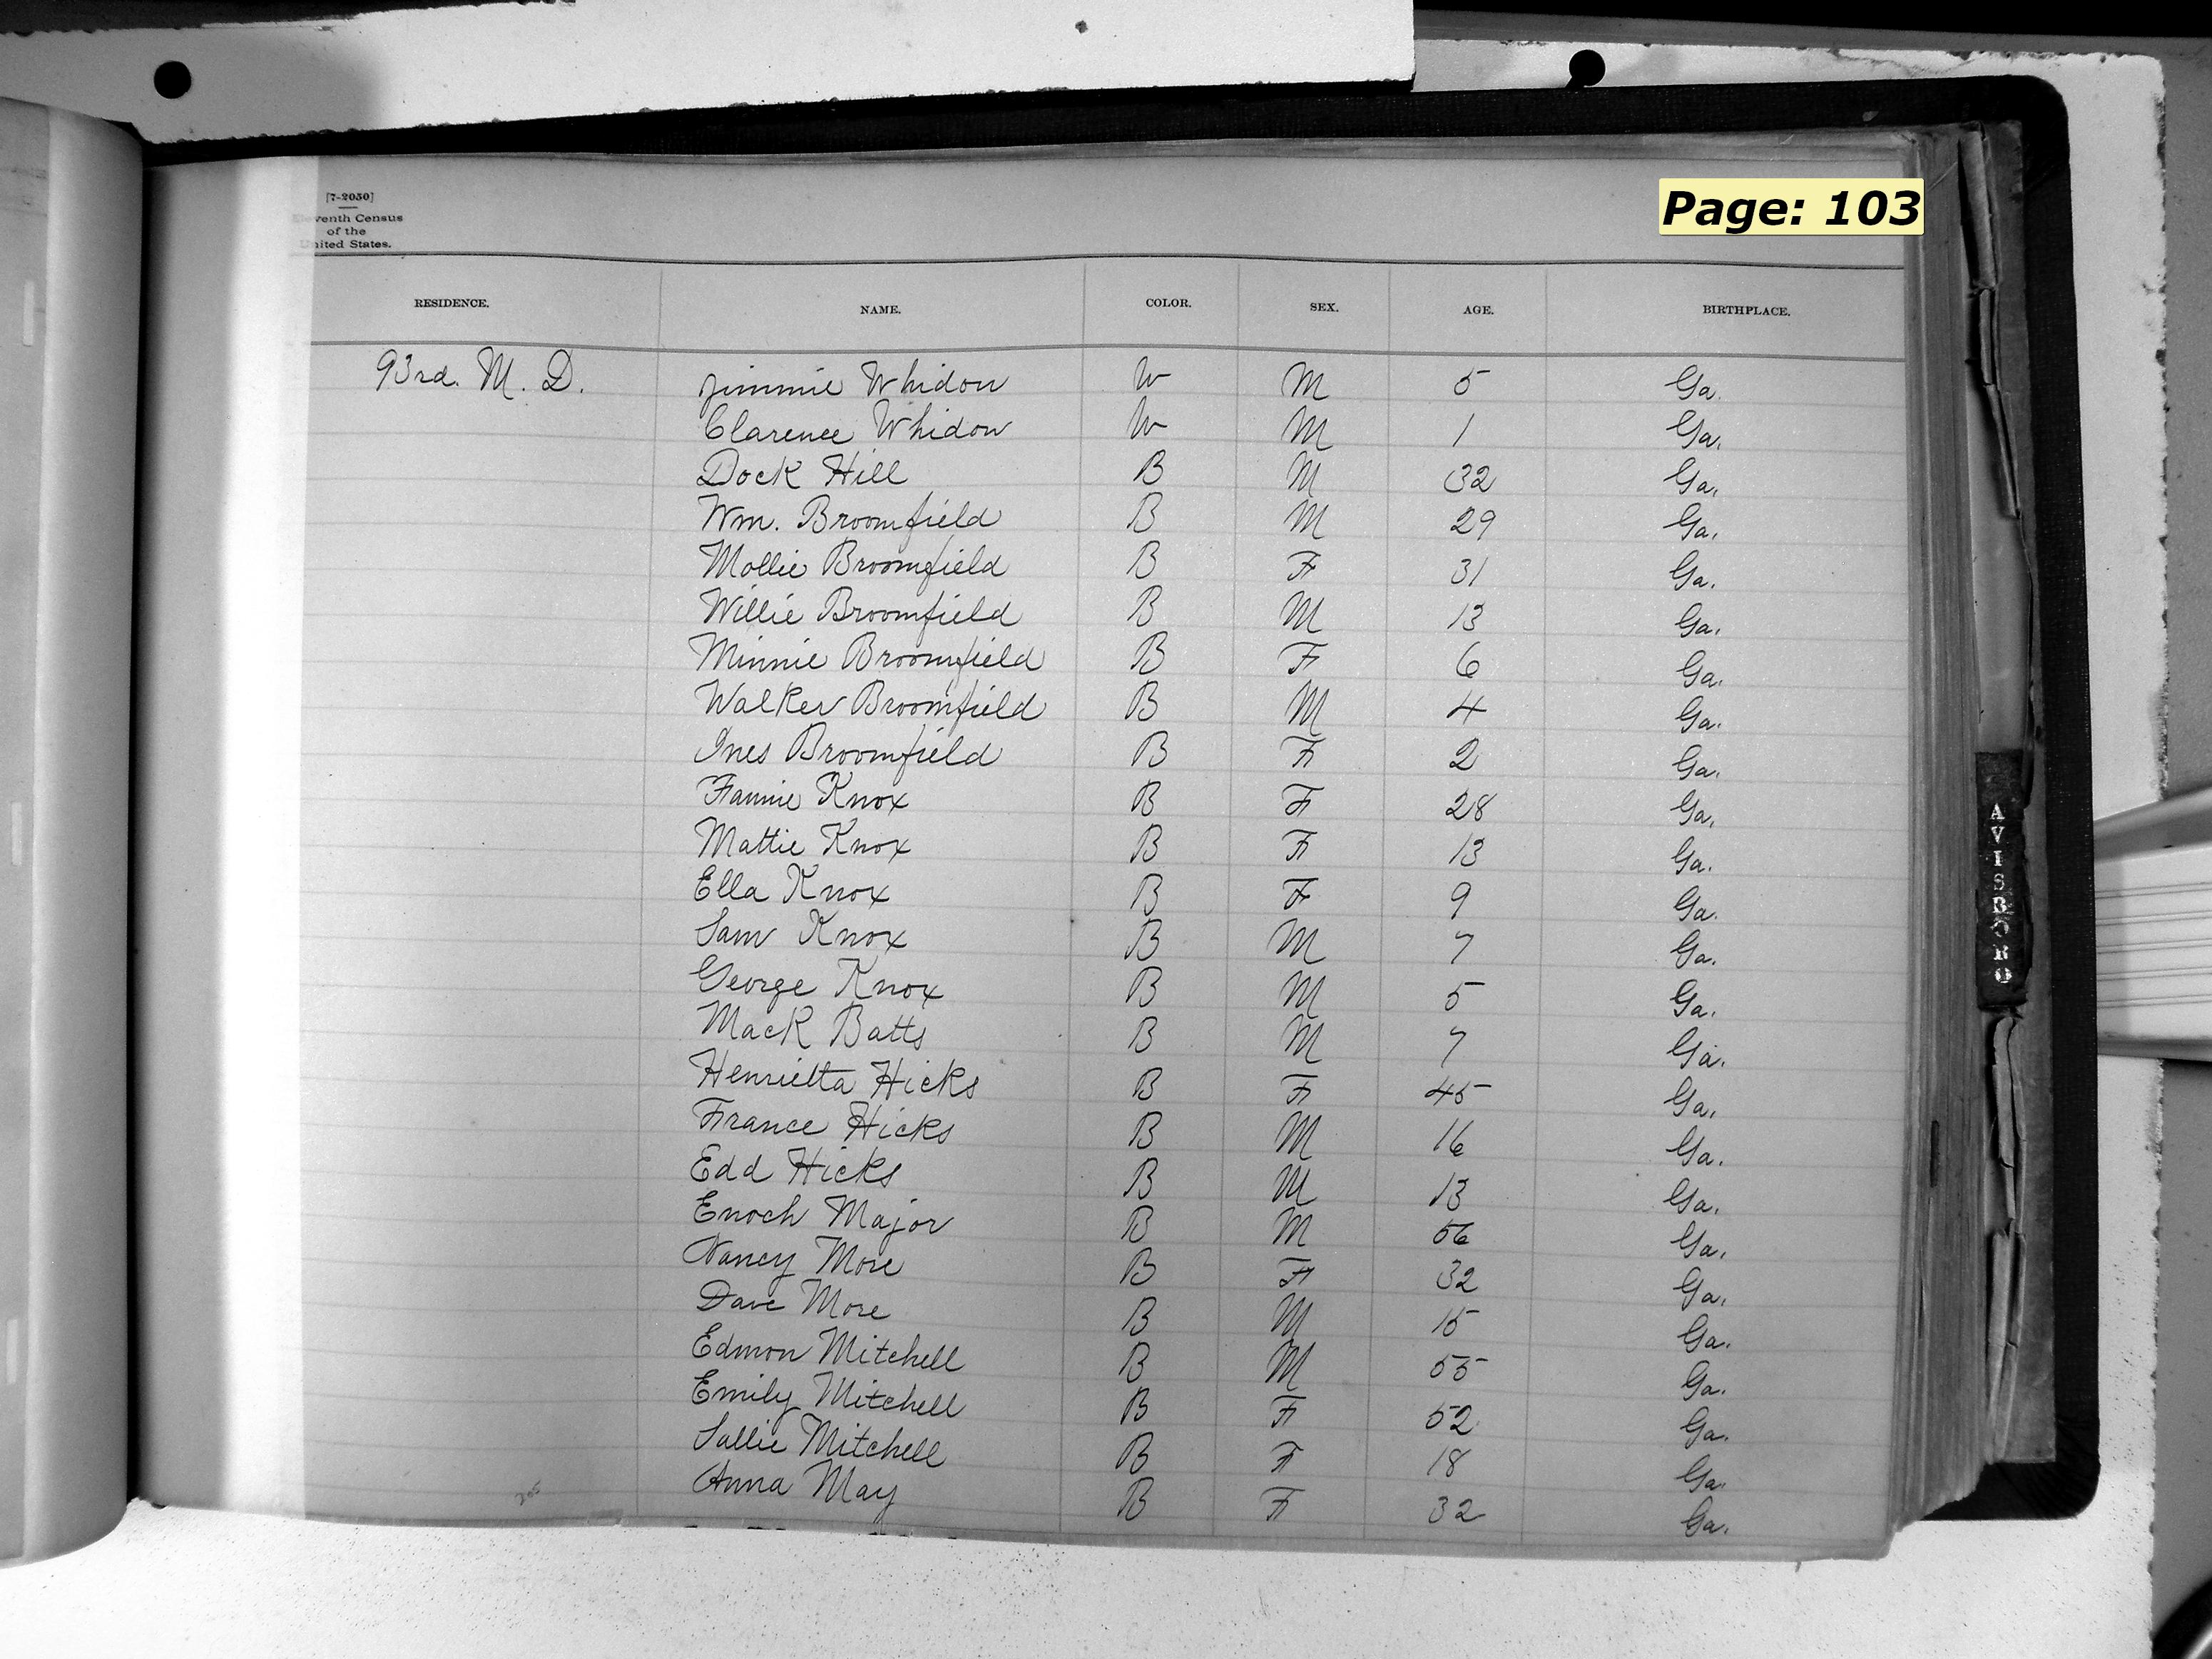 Page: 103
[7-2050]
Eleventh Census
of the
United States.
RESIDENCE. NAME. COLOR. SEX. AGE. BIRTHPLACE.
93rd. M. D. Jimmie Whidon W M 5 Ga.
Clarence Whidon W M 1 Ga.
Dock Hill B M 32 Ga.
Wm. Broomfield B M 29 Ga.
Mollie Broomfield B F 31 Ga.
Willie Broomfield B M 13 Ga.
Minnie Broomfield B F 6 Ga.
Walker Broomfield B M 4 Ga.
Ines Broomfield B F 2 Ga.
Fannie Knox B F 28 Ga.
Mattie Knox B F 13 Ga.
Ella Knox B F 9 Ga.
Sam Knox B M 7 Ga.
George Knox B M 5 Ga.
Mack Batts B M 7 Ga.
Henrietta Hicks B F 45 Ga.
France Hicks B M 16 Ga.
Edd Hicks B M 13 Ga.
Enoch Major B M 56 Ga.
Nancy More B F 32 Ga.
Dave More B M 15 Ga.
Edmon Mitchell B M 55 Ga.
Emily Mitchell B F 52 Ga.
Sallie Mitchell B F 18 Ga.
Anna May B F 32 Ga.
205
AVISBORO